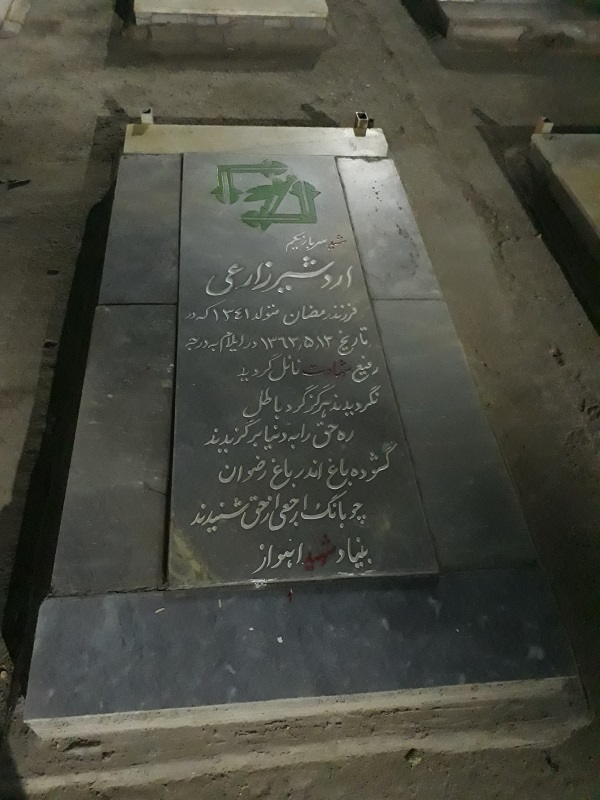 شهید سرباز یکم
اردشیر زارعی
فرزند رمضان متولد ۱۳۴۱ که در
تاریخ ۱۳۶۳٫۵٫۱۳ در ایلام به درجه
رفیع شهادت نائل گردید
نگردیدند هرگز گرد باطل
ره حق را به دنیا برگزیدند
گشوده باغ اندر باغ رضوان
چو بانگ ارجعی از حق شنیدند
بنیاد شهید اهواز